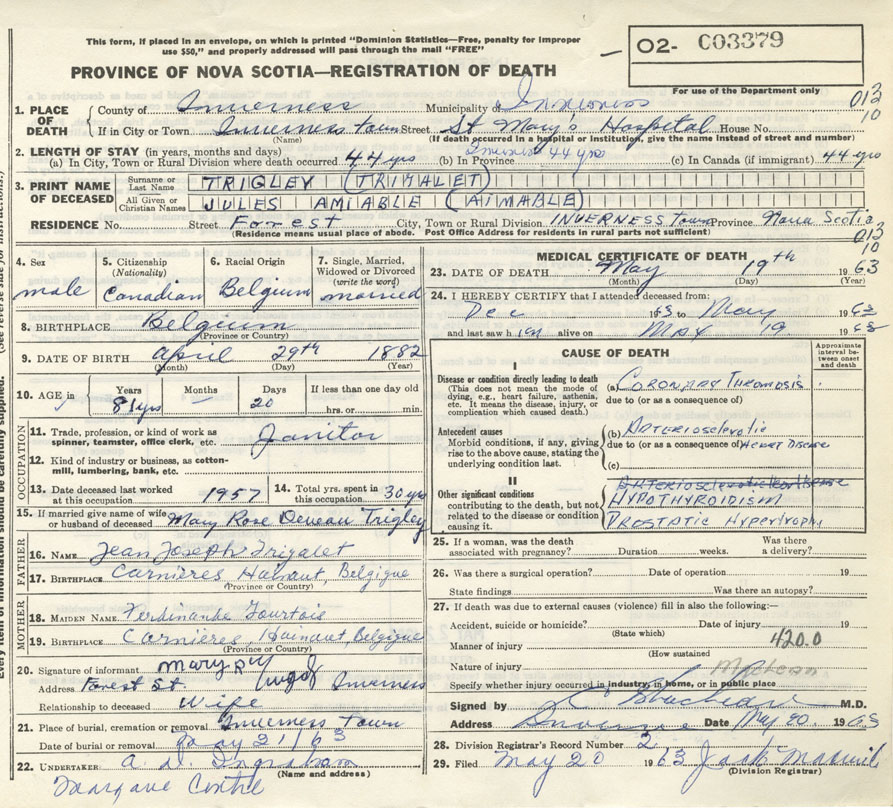 This form, if placed in an envelope, on which is printed "Dominion Statistics—Free, penalty for improper
use $50," and properly addressed will pass through the mail "FREE"
O2- C03379
PROVINCE OF NOVA SCOTIA—REGISTRATION OF DEATH
For use of the Department only
013
10
1. PLACE OF DEATH
County of Inverness Municipality Inverness
If in City or Town Inverness town Street St Mary's Hospital House No.
(Name) (If death occurred in a hospital or institution, give the name instead of street and number)
2. LENGTH OF STAY (in years, months and days)
(a) In City, Town or Rural Division where death occurred 44 yrs (b) In Province 44 yrs (c) In Canada (if immigrant) 44 yrs
3. PRINT NAME OF DECEASED
Surname or Last Name TRIGLEY (TRIGALET)
All Given or Christian Names JULES AMIABLE (AIMABLE)
RESIDENCE No. Street Forest City, Town or Rural Division INVERNESS town Province Nova Scotia
(Residence means usual place of abode. Post Office Address for residents in rural parts not sufficient)
013
10
4. Sex
male
5. Citizenship
(Nationality)
Canadian
6. Racial Origin
Belgium
7. Single, Married, Widowed or Divorced
(write the word)
married
8. BIRTHPLACE Belgium
(Province or Country)
9. DATE OF BIRTH April 29th 1882
(Month) (Day) (Year)
10. AGE in
Years Months Days If less than one day old
81 yrs — 20 hrs. or min.
OCCUPATION
11. Trade, profession, or kind of work as spinner, teamster, office clerk, etc. Janitor
12. Kind of industry or business, as cotton-mill, lumbering, bank, etc.
13. Date deceased last worked at this occupation 1957
14. Total yrs. spent in this occupation 30 yrs
15. If married give name of wife or husband of deceased Mary Rose Deveau Trigley
FATHER
16. NAME Jean Joseph Trigalet
17. BIRTHPLACE Carnières Hainaut, Belgique
(Province or Country)
MOTHER
18. MAIDEN NAME Ferdinande Tourtois
19. BIRTHPLACE Carnières, Hainaut, Belgique
(Province or Country)
20. Signature of informant Mary
Address Forest St. Inverness
Relationship to deceased Wife
21. Place of burial, cremation or removal Inverness Town
Date of burial or removal May 21/63
22. UNDERTAKER A. Ingraham
(Name and address)
Margaree Centre
MEDICAL CERTIFICATE OF DEATH
23. DATE OF DEATH May 19th 1963
(Month) (Day) (Year)
24. I HEREBY CERTIFY that I attended deceased from:
Dec to May 1963
and last saw him alive on May 19 1963
CAUSE OF DEATH
Approximate interval between onset and death
I
Disease or condition directly leading to death
(This does not mean the mode of dying, e.g., heart failure, asthenia, etc. It means the disease, injury, or complication which caused death.)
(a) CORONARY THROMOSIS
due to (or as a consequence of)
Antecedent causes
Morbid conditions, if any, giving rise to the above cause, stating the underlying condition last.
(b) ARTERIOSCLEROTIC
due to (or as a consequence of) HEART DISEASE
(c)
II
Other significant conditions
contributing to the death, but not related to the disease or condition causing it.
HYPOTHYROIDISM
PROSTATIC HYPERTROPHY
25. If a woman, was the death associated with pregnancy? Duration weeks. Was there a delivery?
26. Was there a surgical operation? Date of operation 19
State findings Was there an autopsy?
27. If death was due to external causes (violence) fill in also the following:—
Accident, suicide or homicide? Date of injury 19
(State which)
Manner of injury 420.0
(How sustained
Nature of injury
Specify whether injury occurred in industry, in home, or in public place
Signed by M.D.
Address Inverness Date May 20 1963
28. Division Registrar's Record Number 2
29. Filed May 20 1963 Jack
(Division Registrar)